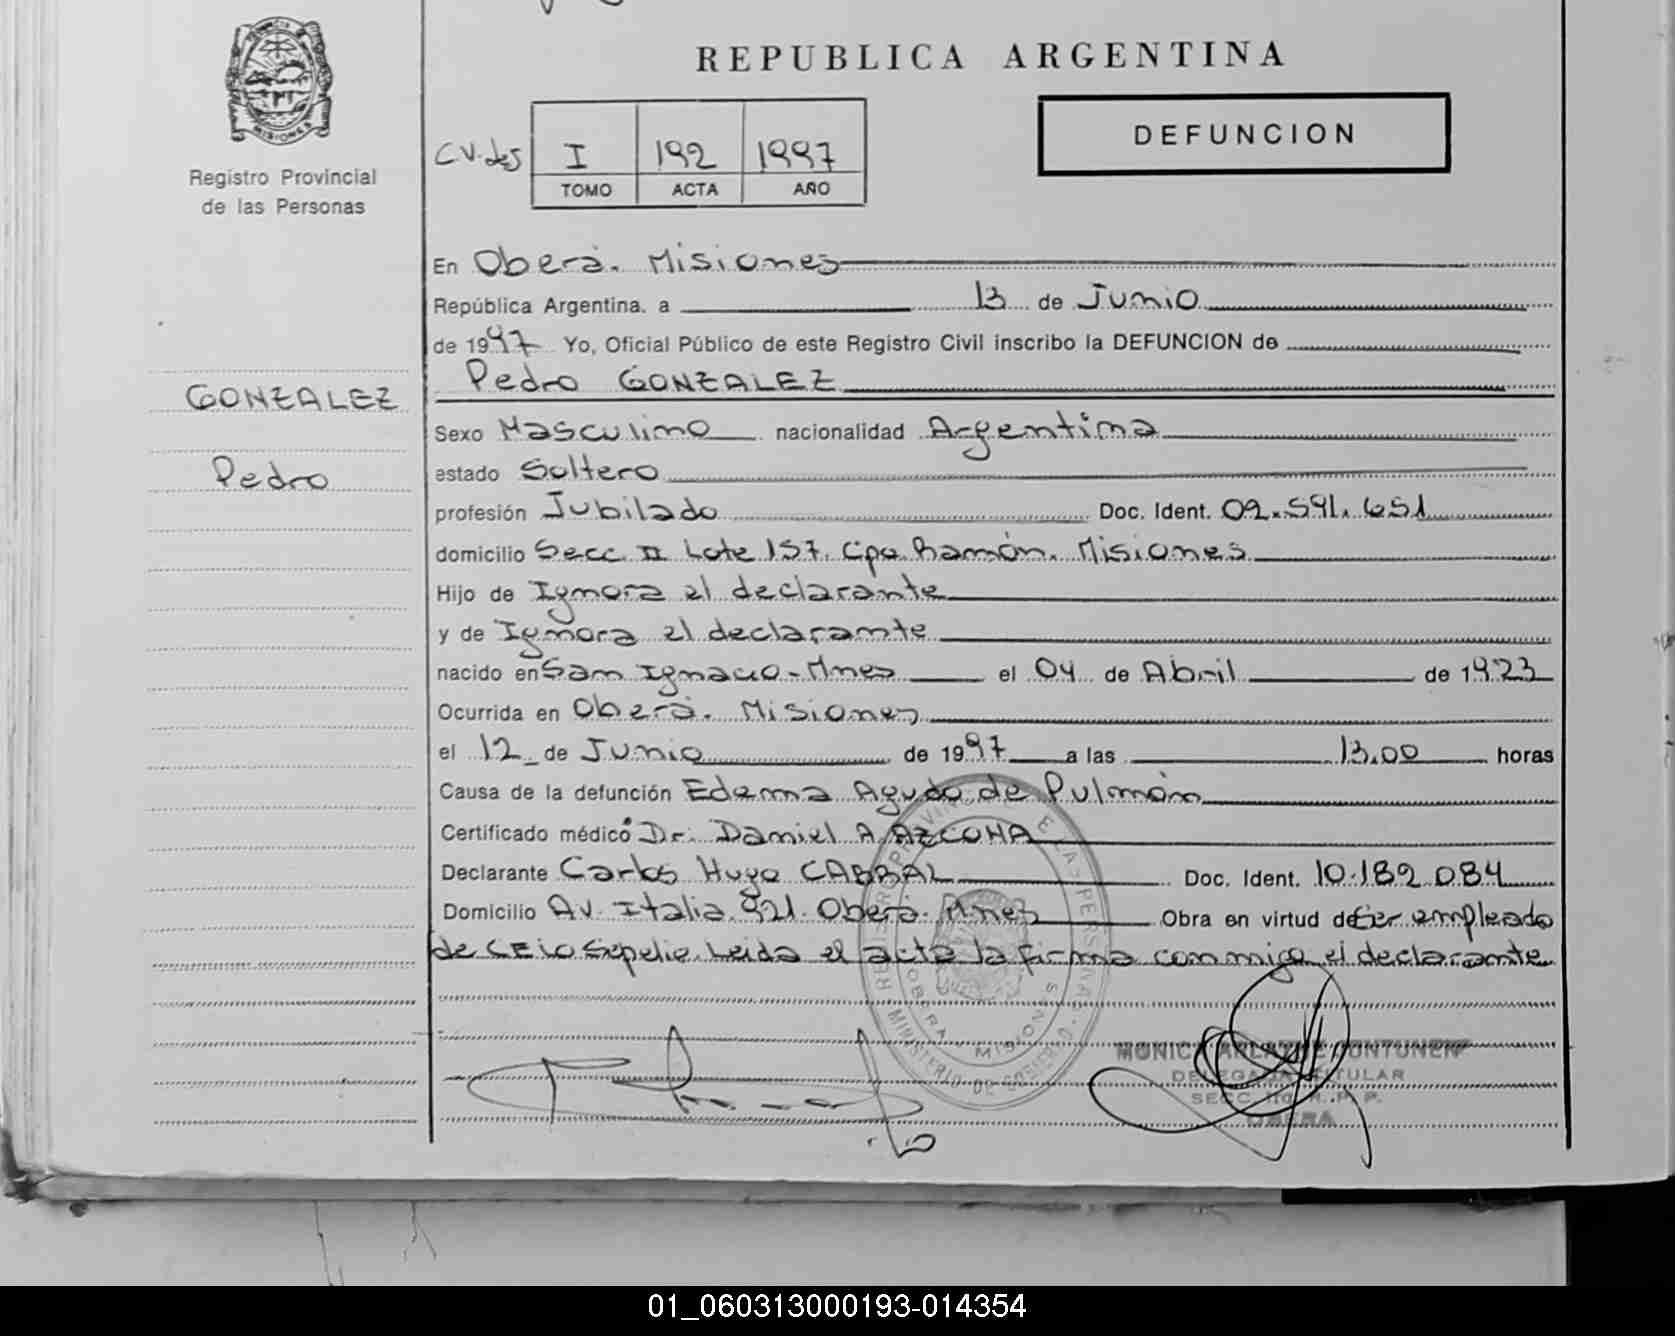 REPUBLICA ARGENTINA
MISIONES
Registro Provincial
de las Personas
C.V. des I 192 1997
TOMO ACTA AÑO
DEFUNCION
En Oberá. Misiones
República Argentina. a 13 de Junio
de 1997 Yo, Oficial Público de este Registro Civil inscribo la DEFUNCION de
Pedro GONZALEZ
GONZALEZ
Pedro
Sexo Masculino nacionalidad Argentina
estado Soltero
profesión Jubilado Doc. Ident. 02.591.651
domicilio Secc. II Lote 157. Cpo. Ramón. Misiones
Hijo de Ignora el declarante
y de Ignora el declarante
nacido en San Ignacio - Mnes el 04 de Abril de 1923
Ocurrida en Oberá. Misiones
el 12 de Junio de 1997 a las 13,00 horas
Causa de la defunción Edema Agudo de Pulmón
Certificado médico Dr. Daniel A AZCONA
Declarante Carlos Hugo CABRAL Doc. Ident. 10.182.084
Domicilio Av. Italia 921. Oberá. Mnes Obra en virtud de ser empleado
de CELO Sepelio. Leida el acta la firma conmigo el declarante
OBERA - MISIONES
MINISTERIO DE GOBIERNO
MONICA
DELEGADA TITULAR
SECC. R. P. P.
OBERA
01_060313000193-014354